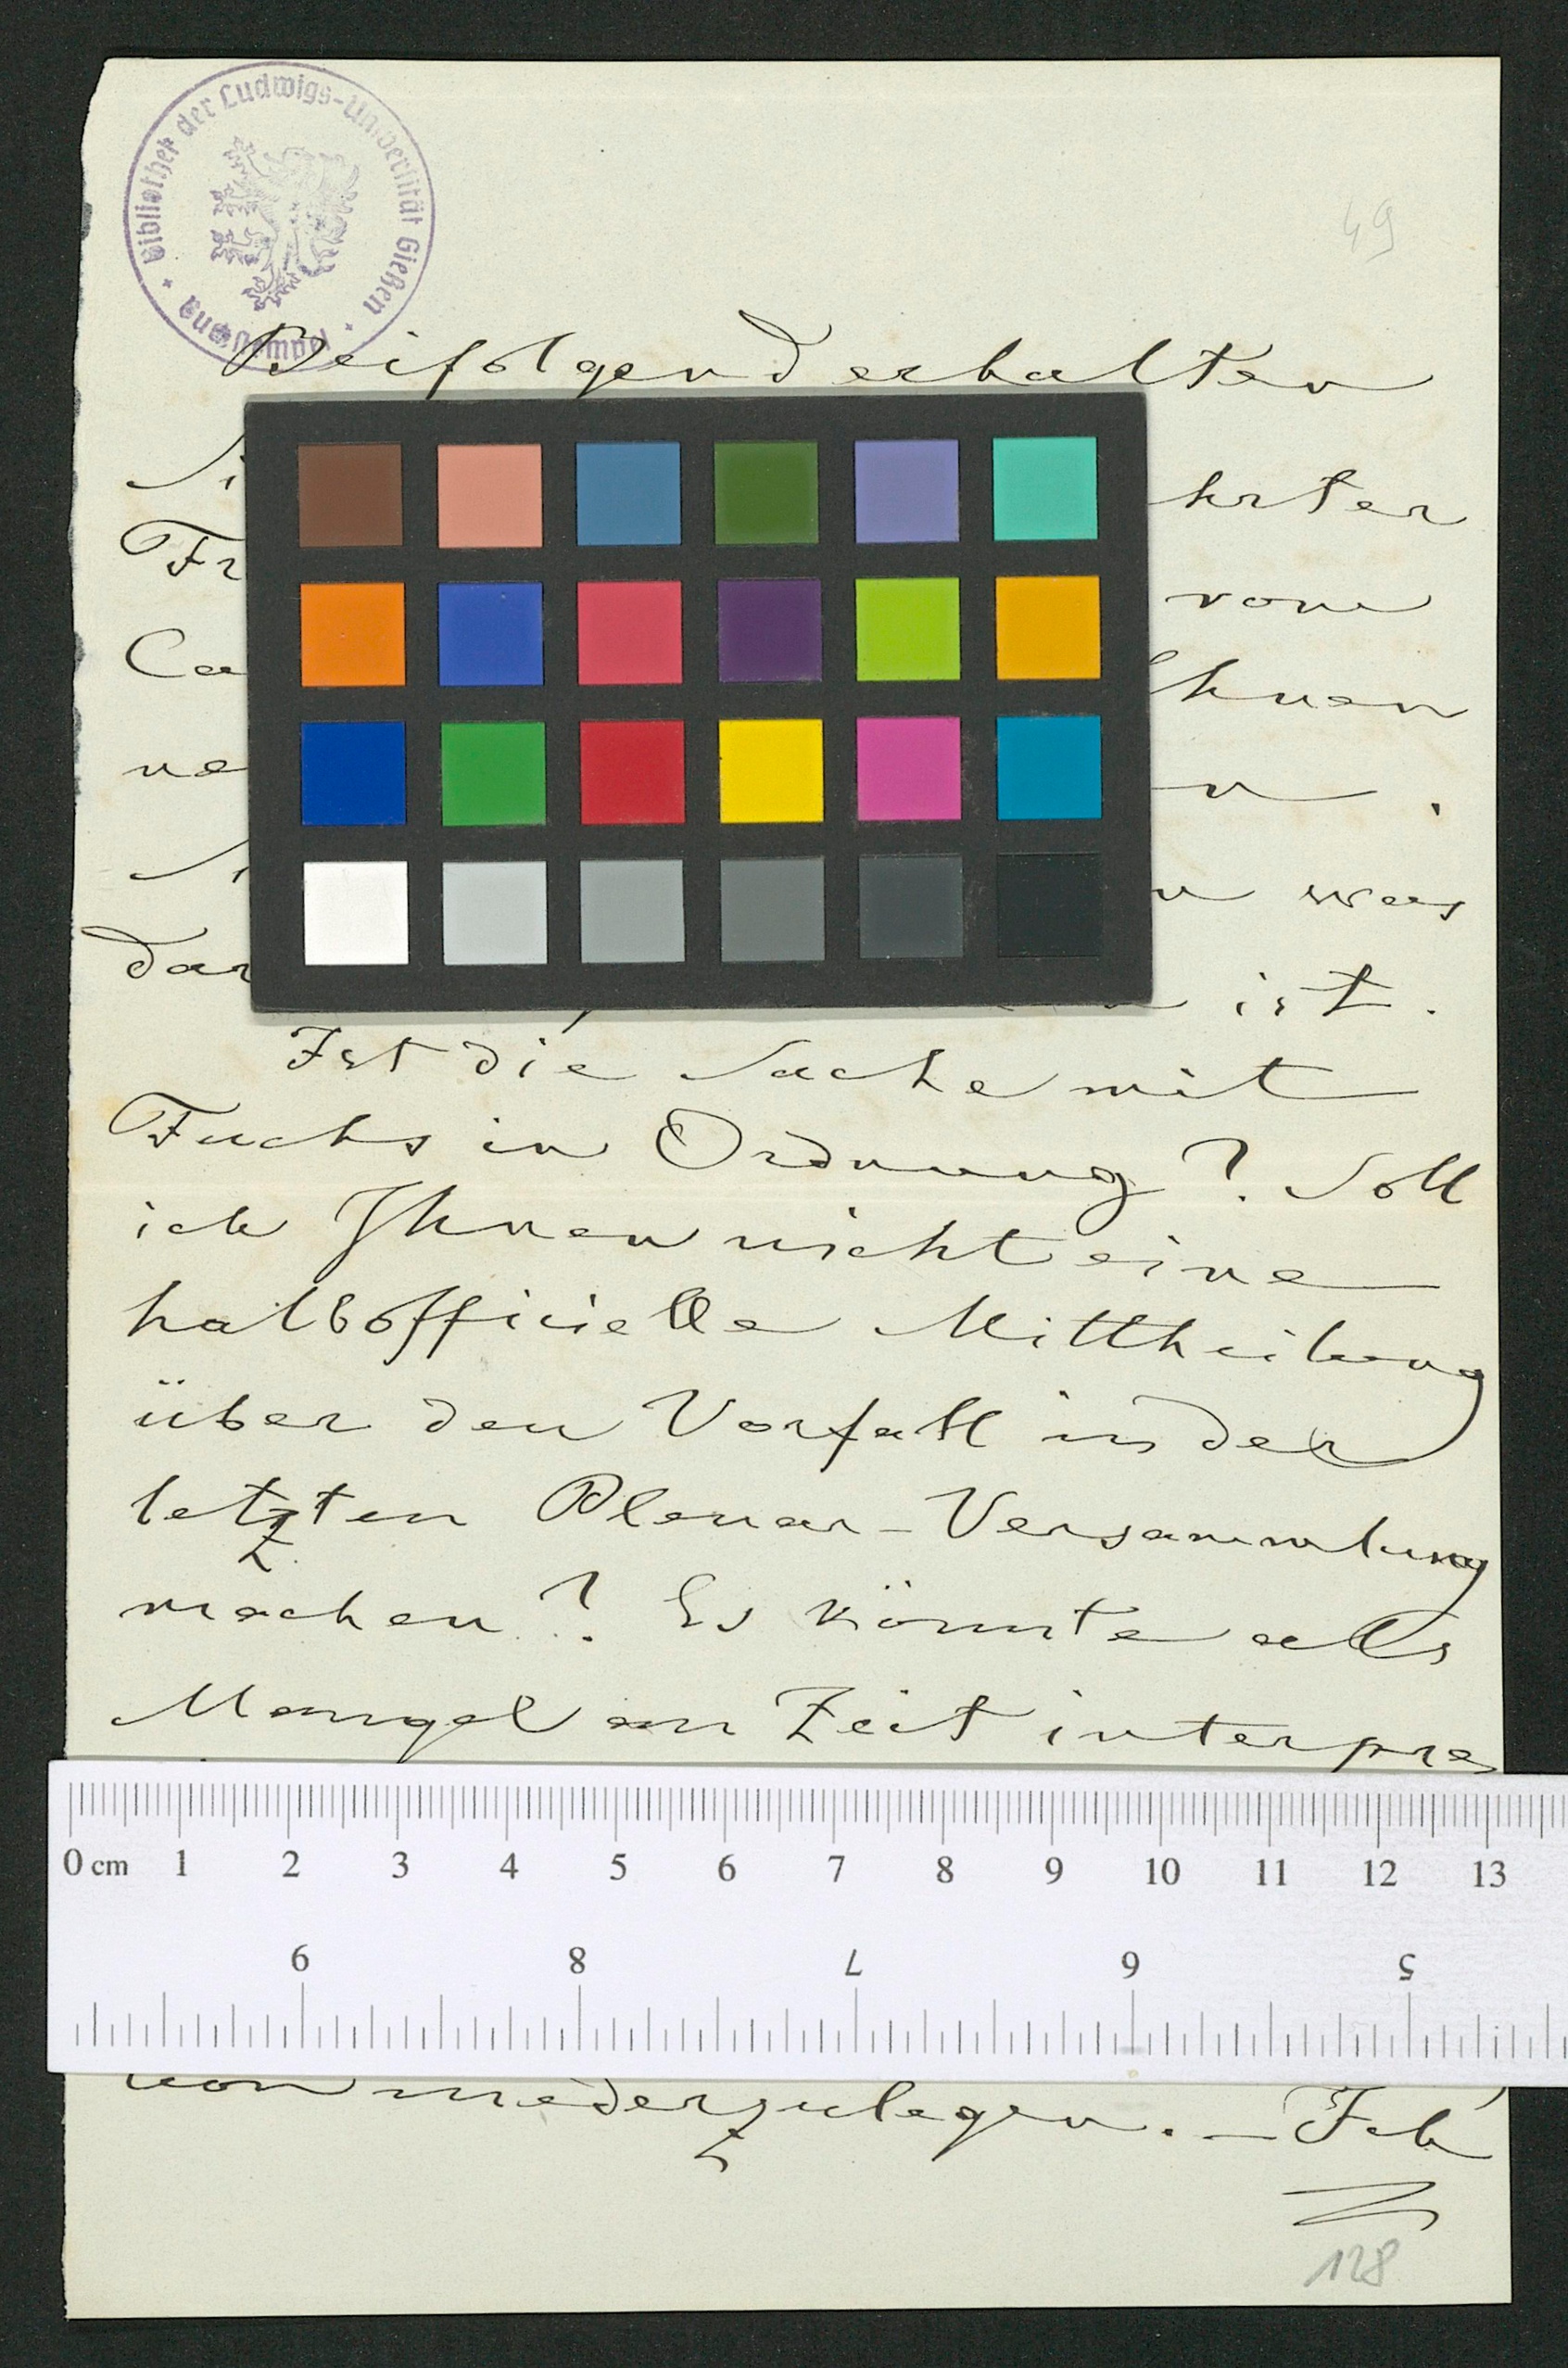 Bibliothek der Ludwigs-Universität Gießen
49
Beifolgend erhalten
hrter
Fr
vom
Ca
Ihnen
ne
n.
was
dar
ist.
Ist die Sache mit
Fuchs in Ordnung? Soll
ich Ihnen nicht eine
halbofficielle Mittheilung
über den Vorfall in der
letzten Plenar-Versammlung
machen? Es könnte als
Mangel an Zeit interpre
0 cm 1 2 3 4 5 6 7 8 9 10 11 12 13
9 8 7 6 5
niederzulegen. — Ich
128